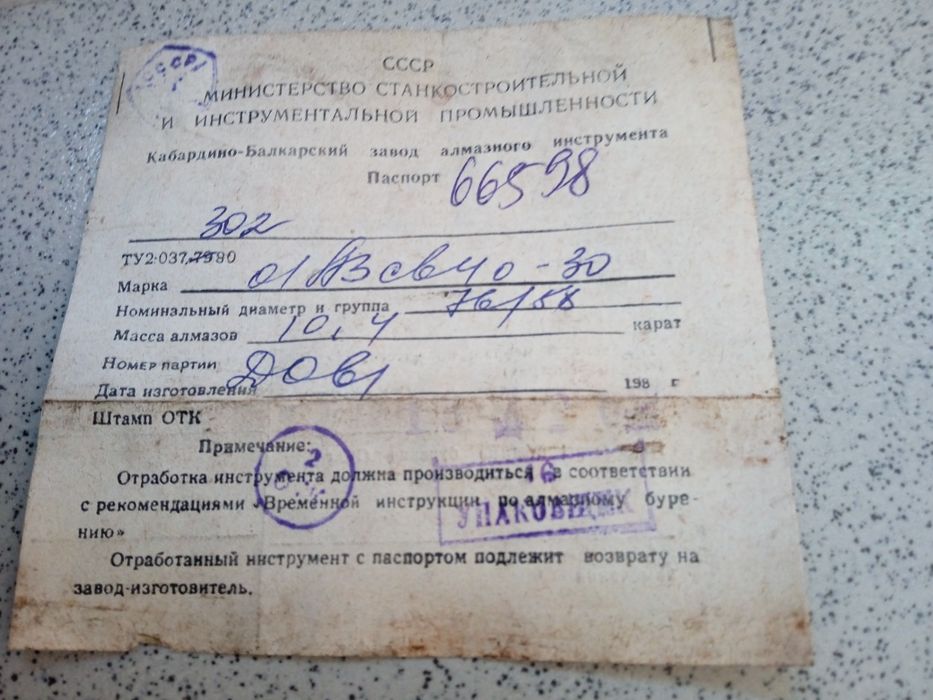 СССР
СССР
МИНИСТЕРСТВО СТАНКОСТРОИТЕЛЬНОЙ
И ИНСТРУМЕНТАЛЬНОЙ ПРОМЫШЛЕННОСТИ
Кабардино-Балкарский завод алмазного инструмента
Паспорт 66598
302
ТУ2-037, 80
Марка 01А3
Номинальный диаметр и группа 76/58
Масса алмазов 10,4 карат
Номер партии
Дата изготовления 198 г
Штамп ОТК
Примечание:
2
16
Отработка инструмента должна производиться в соответствии
с рекомендациями «Временной инструкции по алмазному буре-
УПАКОВЩИК
нию»
Отработанный инструмент с паспортом подлежит возврату на
завод-изготовитель.